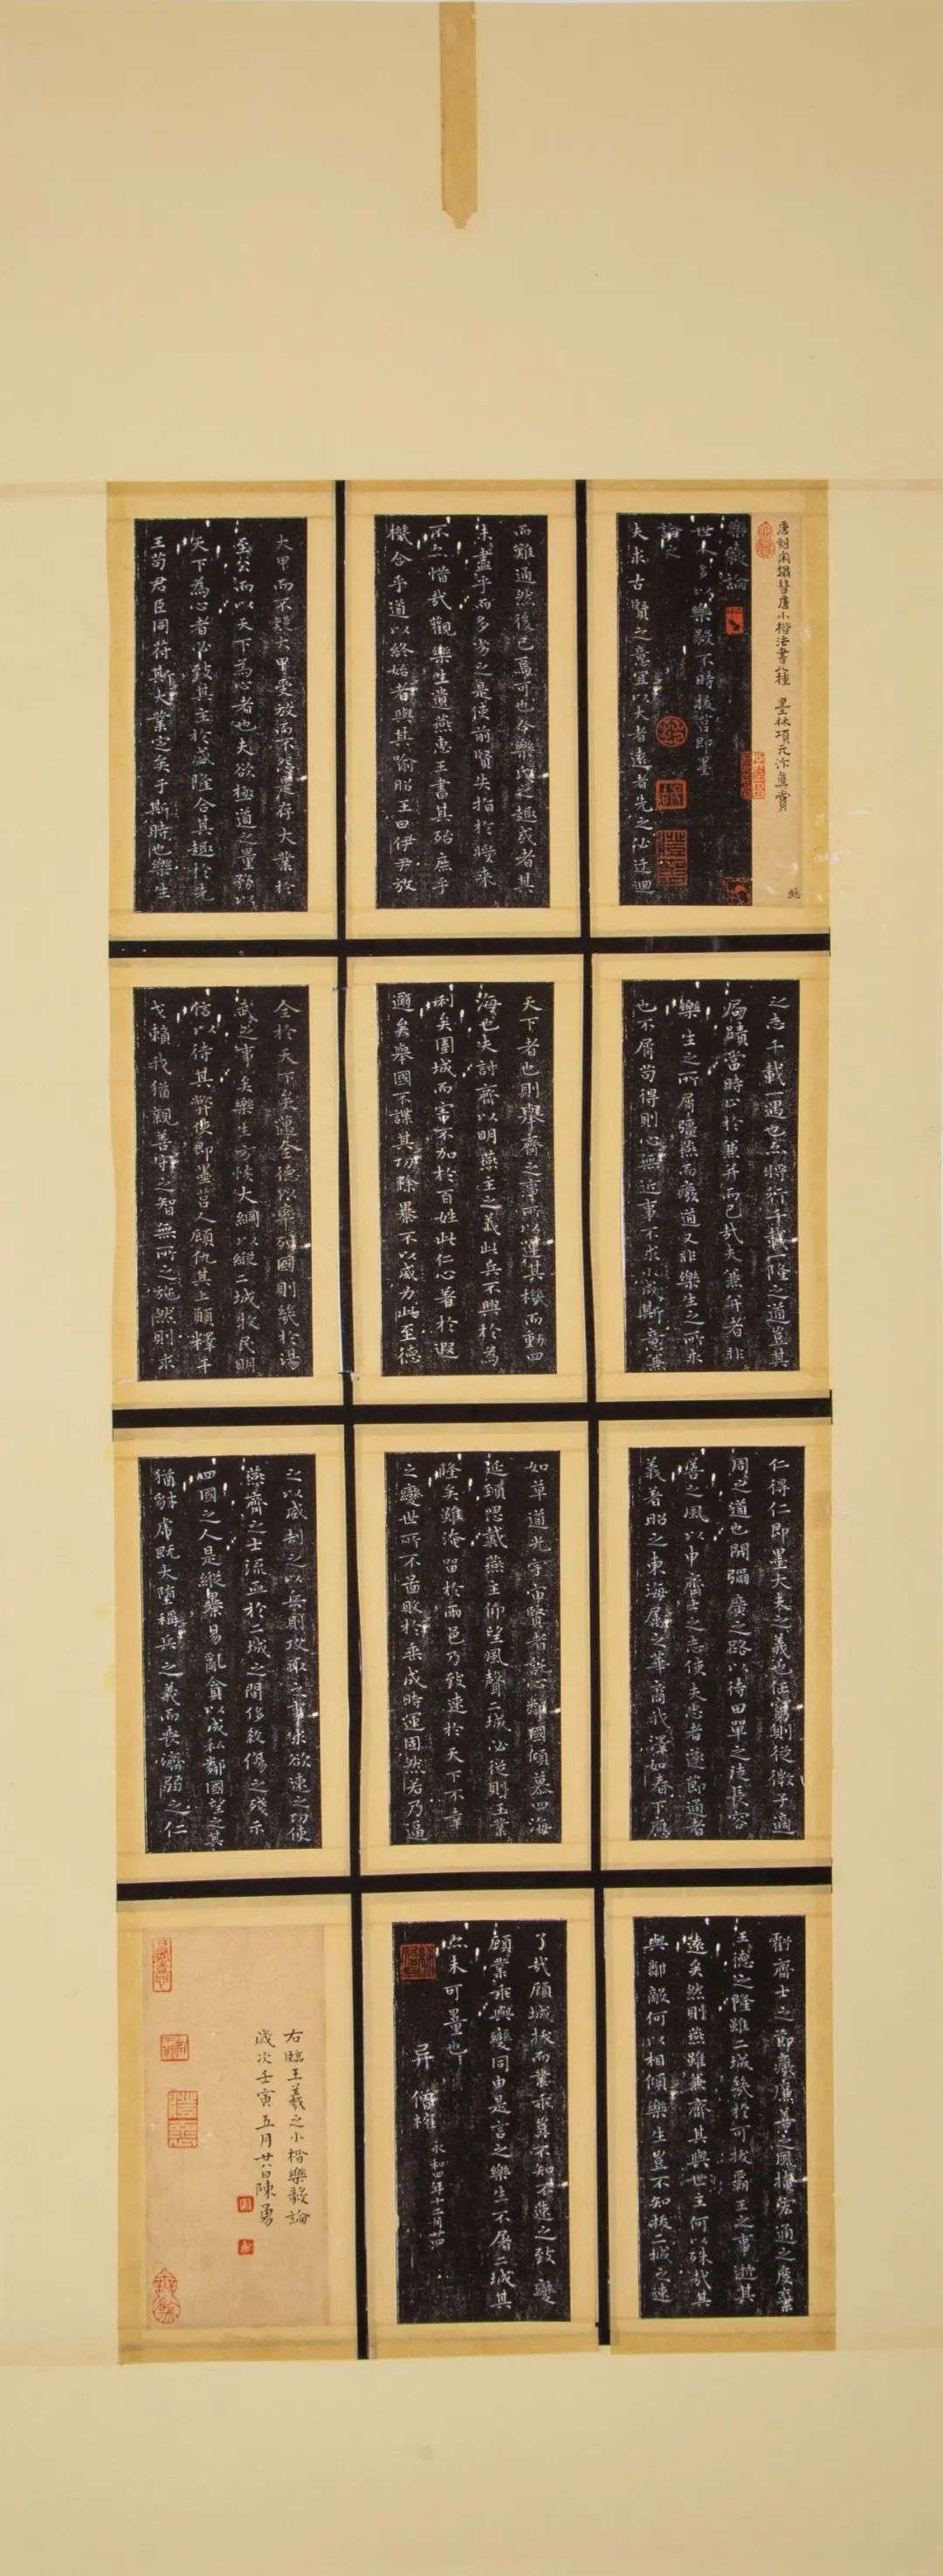 唐刻宋搨晉唐小楷法書八種 墨林項元汴真賞
樂毅論
世人多以樂毅不時拔莒即墨
論之
夫求古賢之意宜以大者遠者先之必迂迴
而難通然後已焉可也今樂氏之趣或者其
未盡乎而多劣之是使前賢失指於將來
不亦惜哉觀樂生遺燕惠王書其殆庶乎
機合乎道以終始者與其喻昭王曰伊尹放
大甲而不疑大甲受放而不怨是存大業於
至公而以天下為心者也夫欲極道之量務以
天下為心者必致其主於盛隆合其趣於先
王苟君臣同符斯大業定矣于斯時也樂生
之志千載一遇也亦將行千載一隆之道豈其
局蹟當時止於兼并而已哉夫兼并者非
樂生之所屑彊燕而廢道又非樂生之所求
也不屑苟得則心無近事不求小成斯意兼
天下者也則舉齊之事所以運其機而動四
海也夫討齊以明燕主之義此兵不興於為
利矣圍城而害不加於百姓此仁心著於遐
邇矣舉國不謀其功除暴不以威力此至德
全於天下矣邁全德以率列國則幾於湯
武之事矣樂生方恢大綱以縱二城牧民明
信以待其弊使即墨莒人顧仇其上願釋干
戈賴我猶親善守之智無所之施然則求
仁得仁即墨大夫之義也任窮則從微子適
周之道也開彌廣之路以待田單之徒長容
善之風以申齊士之志使夫忠者遂節通者
義著昭之東海屬之華裔我澤如春下應
如草道光宇宙賢者託心鄰國傾慕四海
延頸思戴燕主仰望風聲二城必從則王業
隆矣雖淹留於兩邑乃致速於天下不幸
之變世所不圖敗於垂成時運固然若乃逼
之以威劫之以兵則攻取之事求欲速之功使
燕齊之士流血於二城之間侈殺傷之殘示
四國之人是縱暴易亂貪以成私鄰國望之其
猶豺虎既大墮稱兵之義而喪濟弱之仁
虧齊士之節廢廉善之風掩宏通之度棄
王德之隆雖二城幾於可拔霸王之事逝其
遠矣然則燕雖兼齊其與世主何以殊哉其
與鄰敵何以相傾樂生豈不知拔二城之速
了哉顧城拔而業乖豈不知不速之致變
顧業乖與變同由是言之樂生不屠二城其
亦未可量也
异 僧權 永和四年十二月廿四
右臨王羲之小楷樂毅論
歲次壬寅五月廿八日陳勇